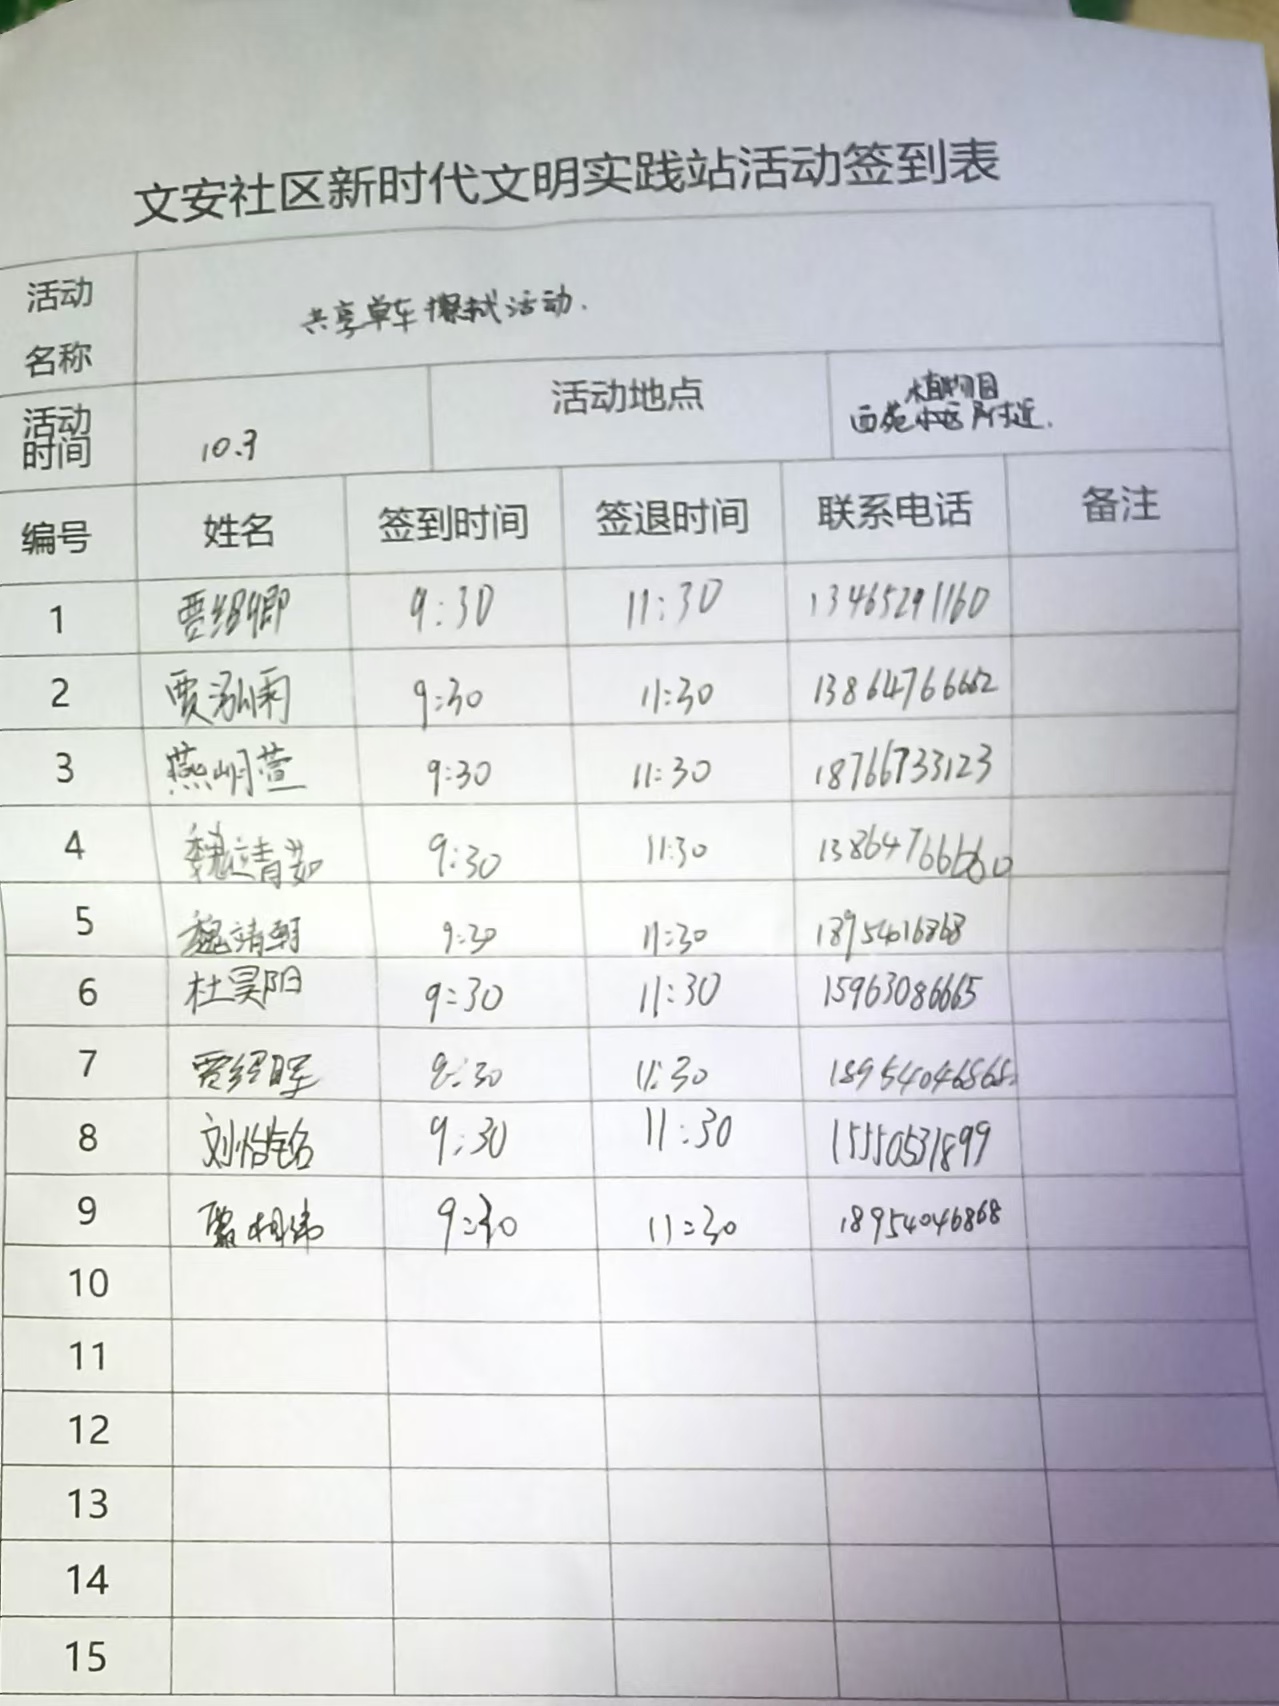 文安社区新时代文明实践站活动签到表
活动名称 共享单车擦拭活动.
活动时间 10.3 活动地点 植物园 西苑小区附近.
编号 姓名 签到时间 签退时间 联系电话 备注
1 贾绍卿 9:30 11:30 13465291160
2 贾泓雨 9:30 11:30 13864766662
3 燕明萱 9:30 11:30 18766733123
4 魏靖茹 9:30 11:30 13864766660
5 魏靖朝 9:30 11:30
6 杜昊阳 9:30 11:30 15963086665
7 11:30
8 刘怡铭 9:30 11:30 15550531899
9 9:30 11:30 18954046868
10
11
12
13
14
15